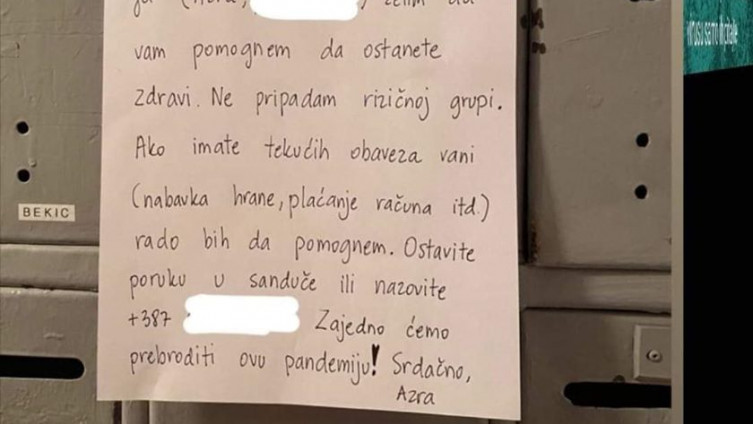 vam pomognem da ostanete
zdravi. Ne pripadam rizičnoj grupi.
Ako imate tekućih obaveza vani
(nabavka hrane, plaćanje računa itd.)
rado bih da pomognem. Ostavite
poruku u sanduče ili nazovite
+387
Zajedno ćemo
prebroditi ovu pandemiju! Srdačno,
Azra
BEKIC